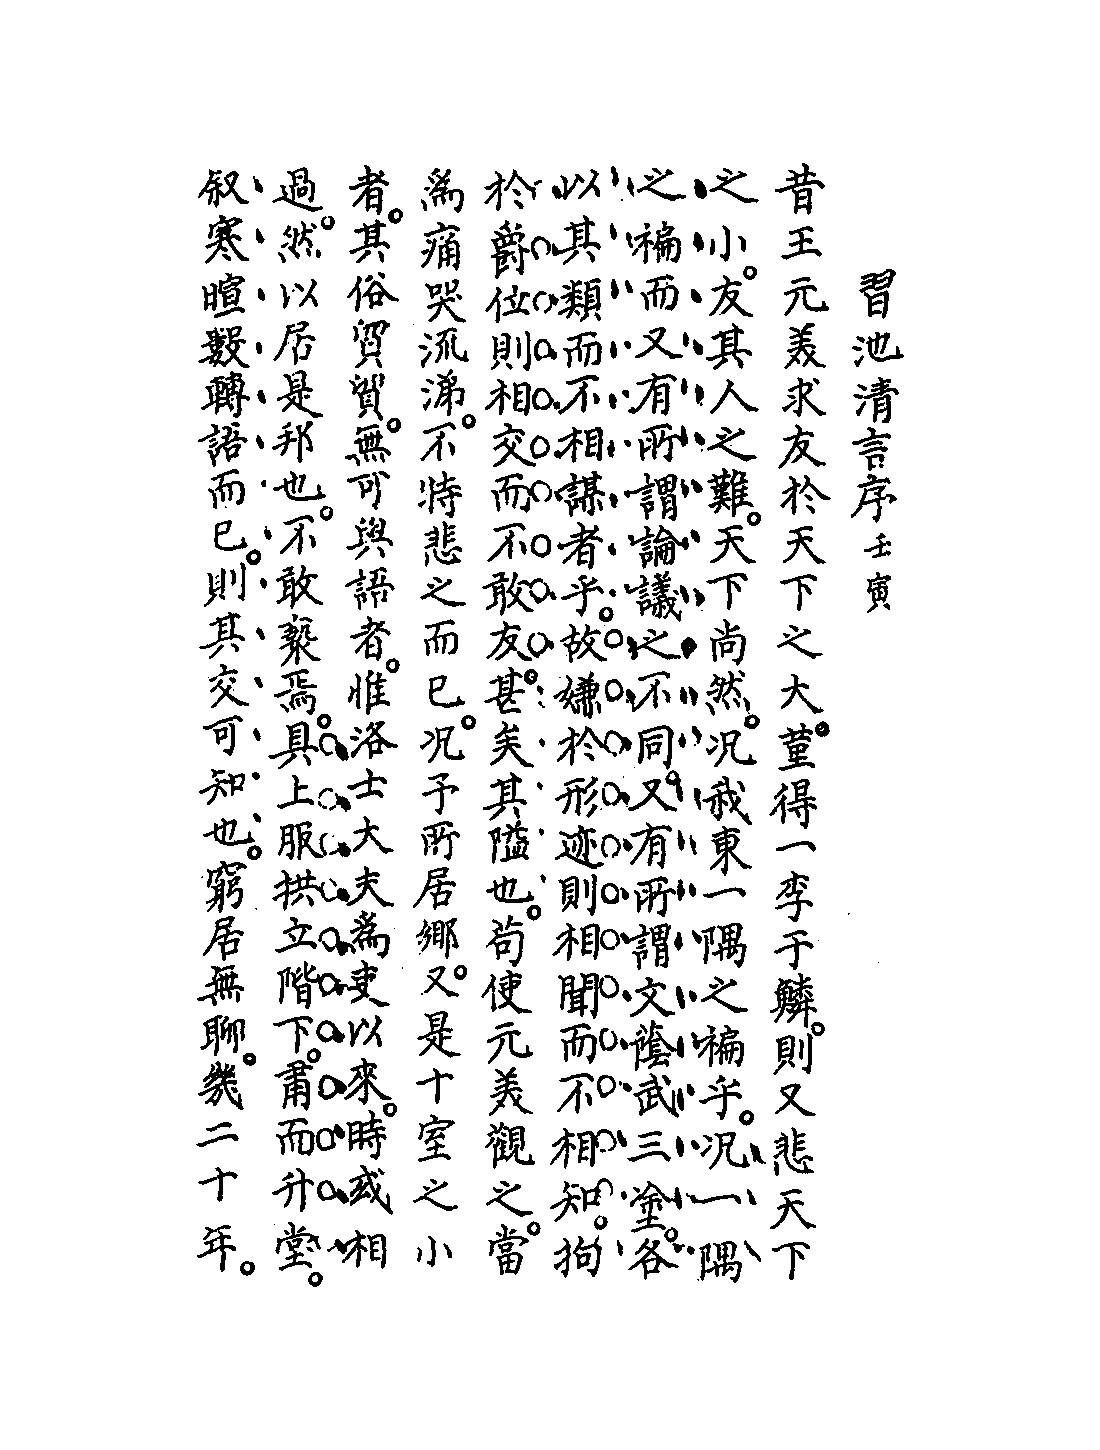 習池清言序 壬寅
昔王元美求友於天下之大。菫得一李于鱗。則又悲天下
之小。友其人之難。天下尚然。况我東一隅之褊乎。况一隅
之褊而又有所謂論議之不同。又有所謂文蔭武三塗。各
以其類而不相謀者乎。故嫌於形迹則相聞而不相知。拘
於爵位則相交而不敢友。甚矣其隘也。苟使元美觀之。當
爲痛哭流涕。不特悲之而已。况予所居鄉。又是十室之小
者。其俗貿貿。無可與語者。惟洛士大夫爲吏以來。時或相
過。然以居是邦也。不敢褻焉。具上服拱立階下。肅而升堂。
叙寒暄數轉語而已。則其交可知也。窮居無聊。幾二十年。